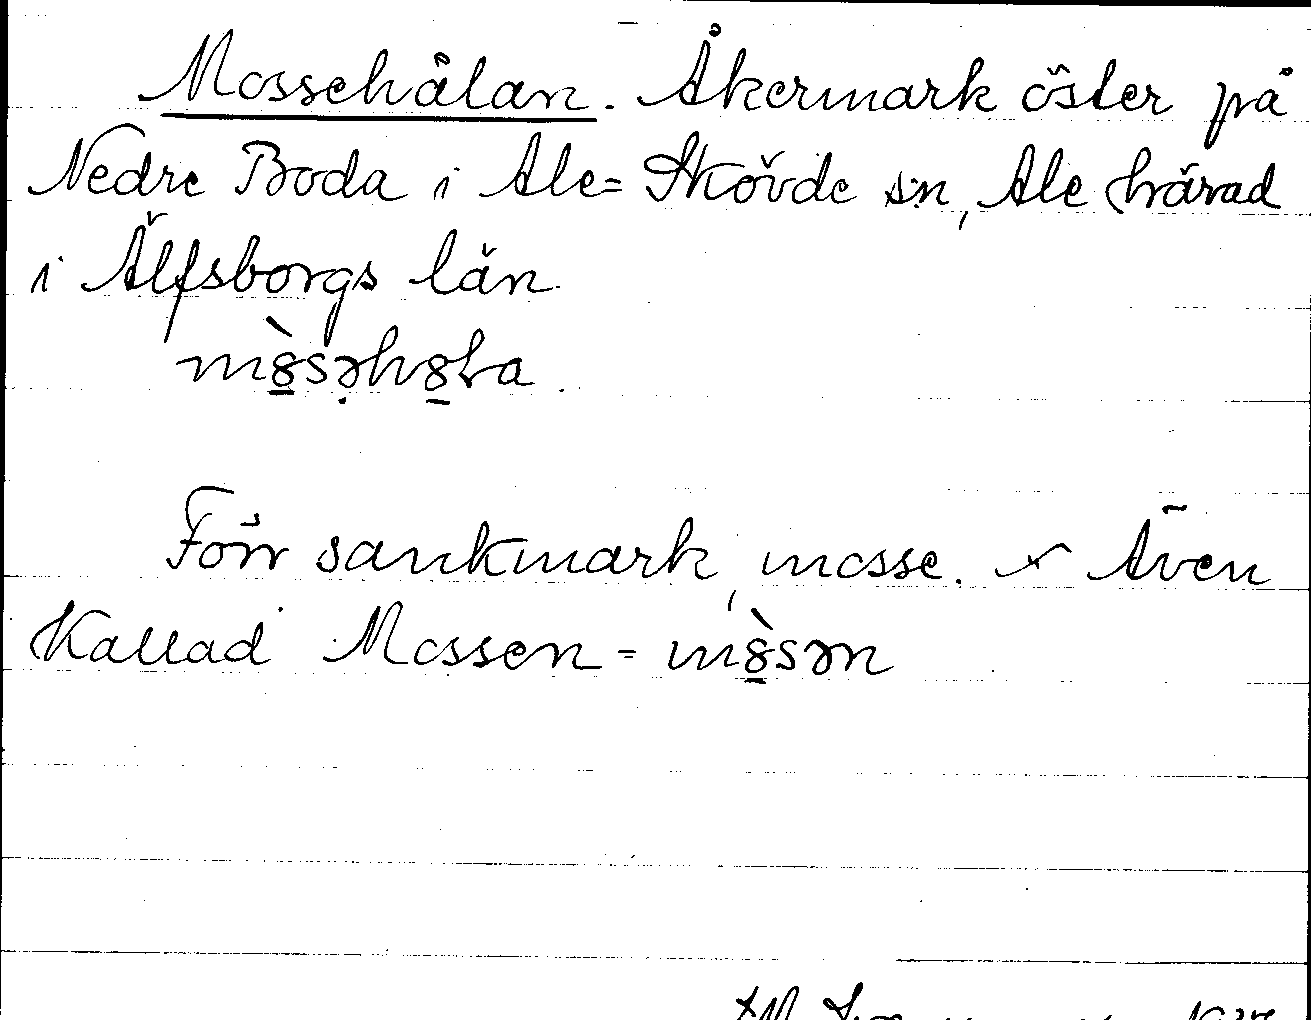 Mossehålan. Åkermark öster på
Nedre Boda i Ale=Skövde sn, Ale härad
i Älfsborgs län
m8̲̀səh8̲ɫa
Förr sankmark, mosse. Även
Kallad Mossen = m8̲̀sən